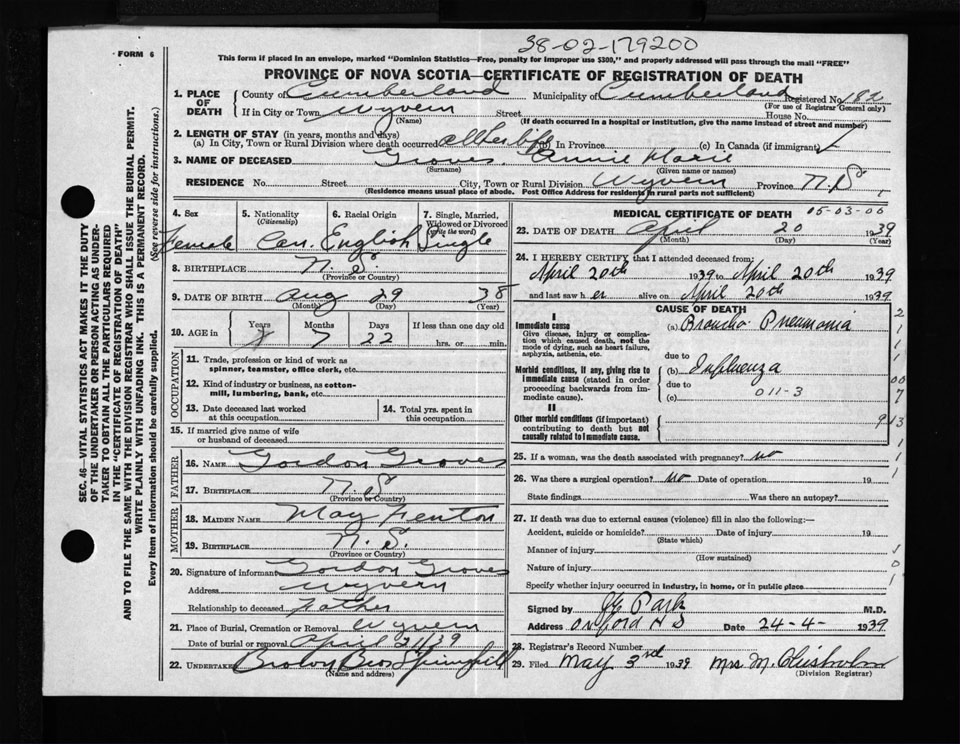 38-02-179200
FORM 6
This form if placed in an envelope, marked "Dominion Statistics—Free, penalty for improper use $300," and properly addressed will pass through the mail "FREE"
PROVINCE OF NOVA SCOTIA—CERTIFICATE OF REGISTRATION OF DEATH
SEC. 46—VITAL STATISTICS ACT MAKES IT THE DUTY
OF THE UNDERTAKER OR PERSON ACTING AS UNDER-
TAKER TO OBTAIN ALL THE PARTICULARS REQUIRED
IN THE "CERTIFICATE OF REGISTRATION OF DEATH"
AND TO FILE THE SAME WITH THE DIVISION REGISTRAR WHO SHALL ISSUE THE BURIAL PERMIT.
WRITE PLAINLY WITH UNFADING INK. THIS IS A PERMANENT RECORD.
Every item of information should be carefully supplied. (See reverse side for instructions.)
1. PLACE OF DEATH County of Cumberland Municipality of Cumberland Registered No. 182
(For use of Registrar General only)
If in City or Town Wyvern Street House No.
(Name) (If death occurred in a hospital or institution, give the name instead of street and number)
2. LENGTH OF STAY (in years, months and days)
(a) In City, Town or Rural Division where death occurred all her life (b) In Province (c) In Canada (if immigrant) ✓
3. NAME OF DECEASED Groves, Annie Marie
(Surname) (Given name or names)
RESIDENCE No. Street City, Town or Rural Division Wyvern Province N.S.
(Residence means usual place of abode. Post Office Address for residents in rural parts not sufficient)
4. Sex Female
5. Nationality (Citizenship) Can.
6. Racial Origin English
7. Single, Married, Widowed or Divorced (write the word) Single
8. BIRTHPLACE N.S.
(Province or Country)
9. DATE OF BIRTH Aug 29 38
(Month) (Day) (Year)
10. AGE in Years Months Days If less than one day old
7 22 hrs. or min.
OCCUPATION
11. Trade, profession or kind of work as spinner, teamster, office clerk, etc.
12. Kind of industry or business, as cotton-mill, lumbering, bank, etc.
13. Date deceased last worked at this occupation
14. Total yrs. spent in this occupation
15. If married give name of wife or husband of deceased
FATHER
16. NAME Gordon Groves
17. BIRTHPLACE N.S.
(Province or Country)
MOTHER
18. MAIDEN NAME May Fenton
19. BIRTHPLACE N.S.
(Province or Country)
20. Signature of informant Gordon Groves
Address Wyvern
Relationship to deceased Father
21. Place of Burial, Cremation or Removal Wyvern
Date of burial or removal April 21/39
22. UNDERTAKER Brown Bros Springhill
(Name and address)
MEDICAL CERTIFICATE OF DEATH 05-03-00
23. DATE OF DEATH April 20 1939
(Month) (Day) (Year)
24. I HEREBY CERTIFY that I attended deceased from:
April 20th 1939 to April 20th 1939
and last saw h er alive on April 20th 1939
CAUSE OF DEATH
I
Immediate cause
Give disease, injury or complica-
tion which caused death, not the
mode of dying, such as heart failure,
asphyxia, asthenia, etc.
(a) Broncho Pneumonia
due to
Morbid conditions, if any, giving rise to
immediate cause (stated in order
proceeding backwards from im-
mediate cause).
(b) Influenza
due to
(c) 011-3
II
Other morbid conditions (if important)
contributing to death but not
causally related to immediate cause.
25. If a woman, was the death associated with pregnancy? no
26. Was there a surgical operation? no Date of operation 19
State findings Was there an autopsy?
27. If death was due to external causes (violence) fill in also the following:—
Accident, suicide or homicide? Date of injury 19
(State which)
Manner of injury
(How sustained)
Nature of injury
Specify whether injury occurred in industry, in home, or in public place
Signed by Park M.D.
Address Oxford N S Date 24-4- 1939
28. Registrar's Record Number
29. Filed May 3rd 1939 Mrs M. Chisholm
(Division Registrar)